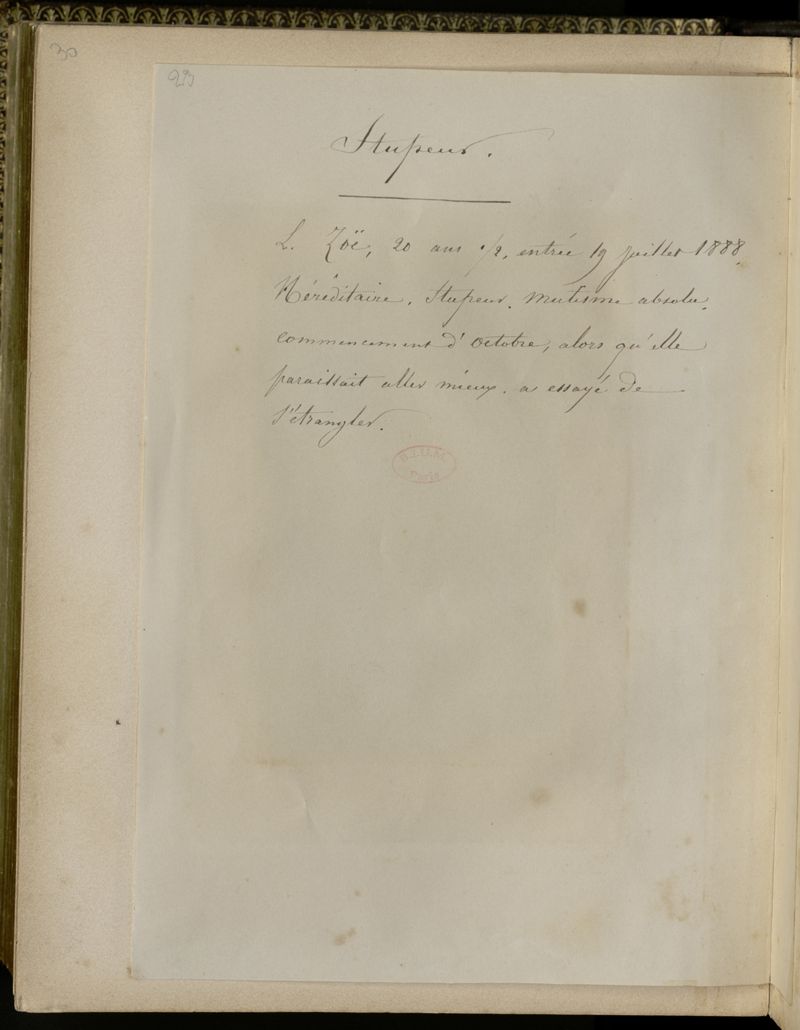 30
29
Stupeur.
L. Zoë, 20 ans 1/2, entrée 19 juillet 1888.
Héréditaire. Stupeur. Mutisme absolu.
Commencement d'octobre, alors qu'elle
paraissait aller mieux, a essayé de
s'étrangler.
B.I.U.M.
Paris